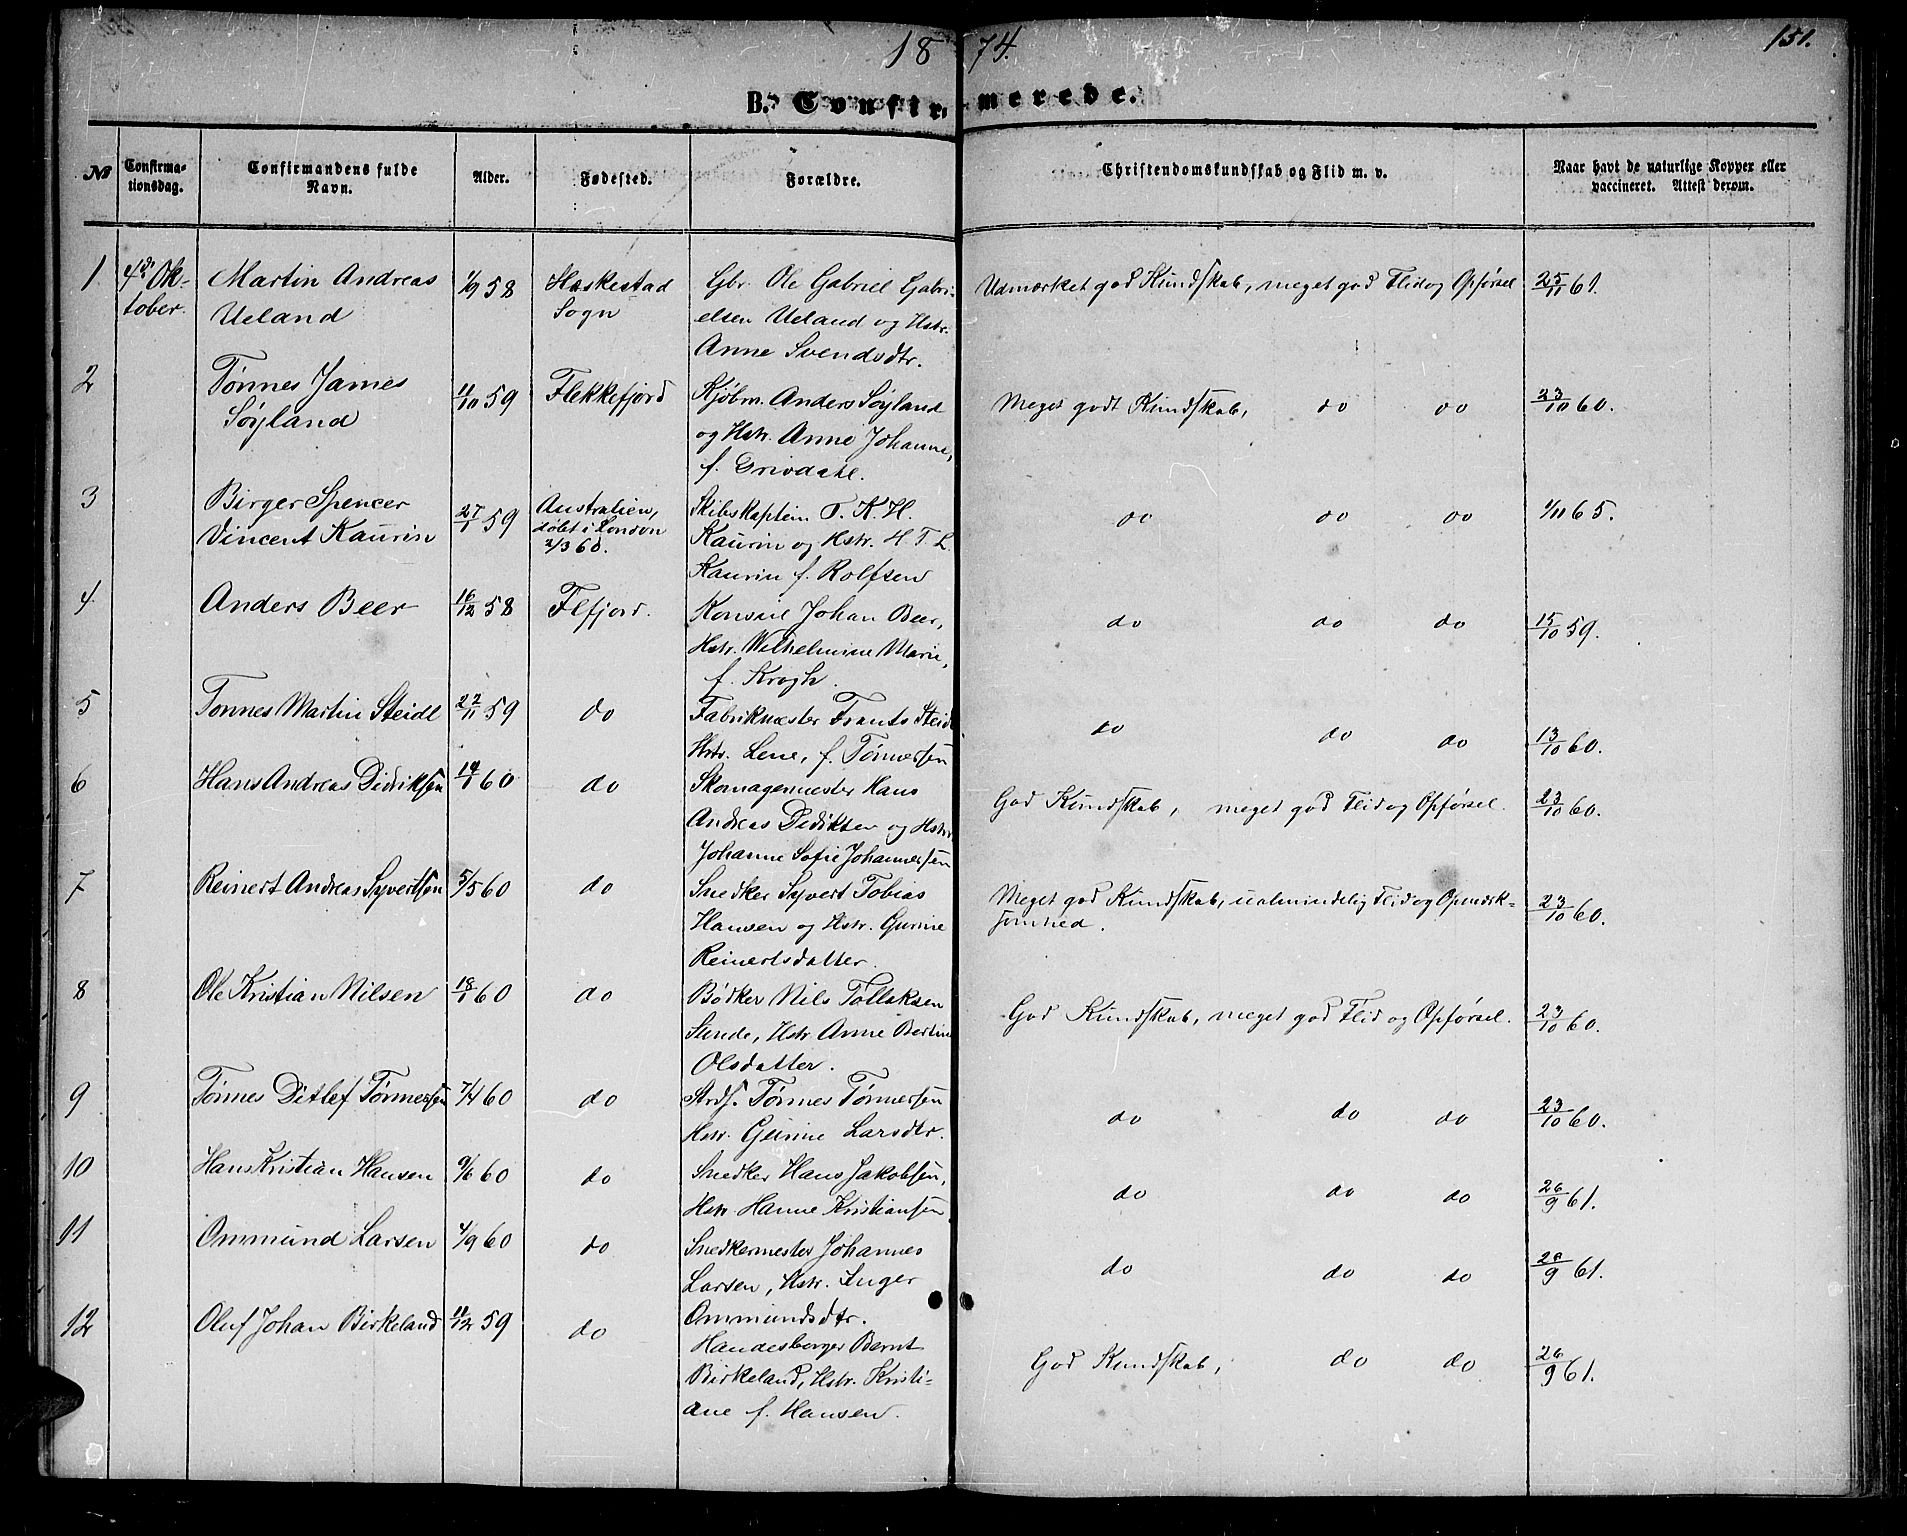 1874. 151.
B. Confirmerede.
No Confirmationsdag. Confirmandens fulde Navn. Alder. Fødested. Forældre. Christendomskundskab og Flid m. v. Naar havt de naturlige Kopper eller vaccineret. Attest derom.
1 4de Ok- Martin Andreas 1/9 58 Heskestad Gbr. Ole Gabriel Gabri- Udmærket god Kundskab, meget god Flid og Opførsel 25/11 61.
tober. Ueland Sogn elsen Ueland og Hstr.
Anne Svendsdtr.
2 Tønnes James 11/10 59 Flekkefjord Kjøbm. Anders Søyland Meget godt Kundskab, do do 23/10 60.
Søyland og Hstr. Anne Johanne,
f. Grivdahl.
3 Birger Spencer 27/1 59 Australien, Skibskaptein O. K. H. do do do 1/11 65.
Vincent Kaurin døbt i London Kaurin og Hstr. H. T. L.
2/3 60. Kaurin f. Rolfsen
4 Anders Beer 16/12 58 Flfjord. Konsul Johan Beer, do do do 15/10 59.
Hstr. Wilhelmine Marie,
f. Krogh.
5 Tønnes Martin Steidl 22/11 59 do Fabrikmester Frants Steidl do do do 13/10 60.
Hstr. Lene, f. Tønnessen
6 Hans Andreas Didriksen 14/1 60 do Skomagermester Hans God Kundskab, meget god Flid og Opførsel. 23/10 60.
Andreas Didriksen og Hstr.
Johanne Sofie Johannessen
7 Reinert Andreas Syvertsen 5/5 60 do Snedker Syvert Tobias Meget god Kundskab, ualmindelig Flid og Opmærk- 23/10 60.
Hansen og Hstr. Gurine somhed.
Reinertsdatter.
8 Ole Kristian Nilsen 18/1 60 do Bødker Nils Tollaksen God Kundskab, meget god Flid og Opførsel. 23/10 60.
Stende, Hstr. Anne Bertine
Olsdatter.
9 Tønnes Ditlef Tønnessen 7/4 60 do Strds. Tønnes Tønnessen do do do 23/10 60.
Hstr. Gurine Larsdtr.
10 Hans Kristian Hansen 9/6 60 do Snedker Hans Jakobsen, do do do 26/9 61.
Hstr. Hanne Kristiansen
11 Ommund Larsen 4/9 60 do Snedkermester Johannes do do do 26/9 61.
Larsen, Hstr. Inger
Ommundsdtr.
12 Oluf Johan Birkeland 11/12 59 do Handesborger Bernt God Kundskab, do do 26/9 61.
Birkeland, Hstr. Kristi-
ane f. Hansen.